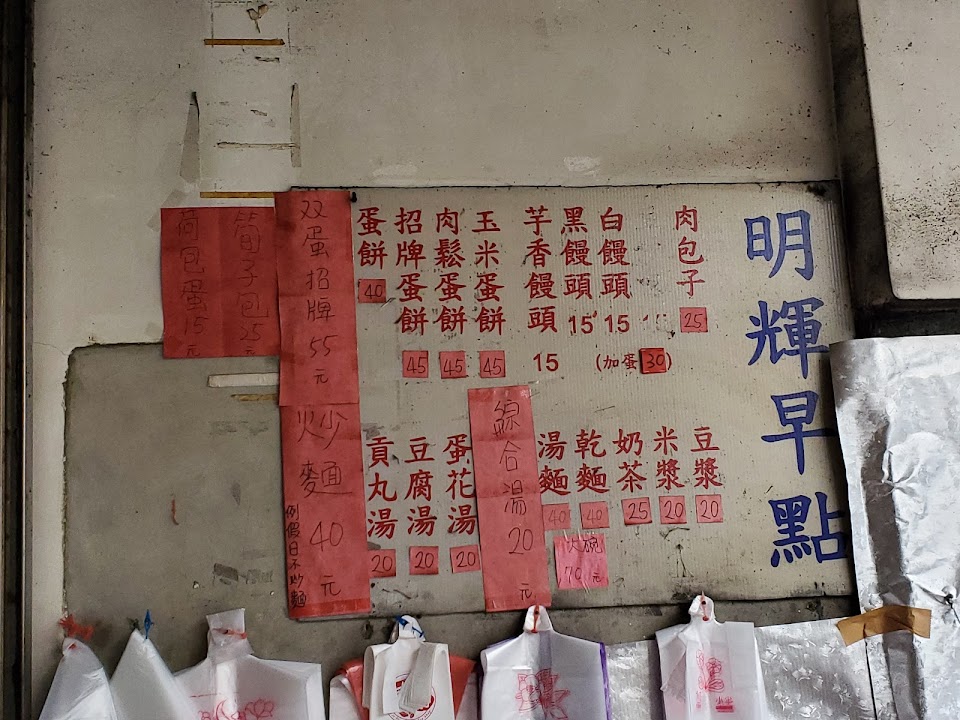 明輝早點
肉包子 25
白饅頭 15
(加蛋30)
黑饅頭 15
芋香饅頭 15
玉米蛋餅 45
肉鬆蛋餅 45
招牌蛋餅 45
蛋餅 40
双蛋招牌 55元
筍子包 25元
荷包蛋 15元
豆漿 20
米漿 20
奶茶 25
乾麵 40
湯麵 40
大碗 70元
綜合湯 20元
蛋花湯 20
豆腐湯 20
貢丸湯 20
炒麵 40元
例假日不炒麵